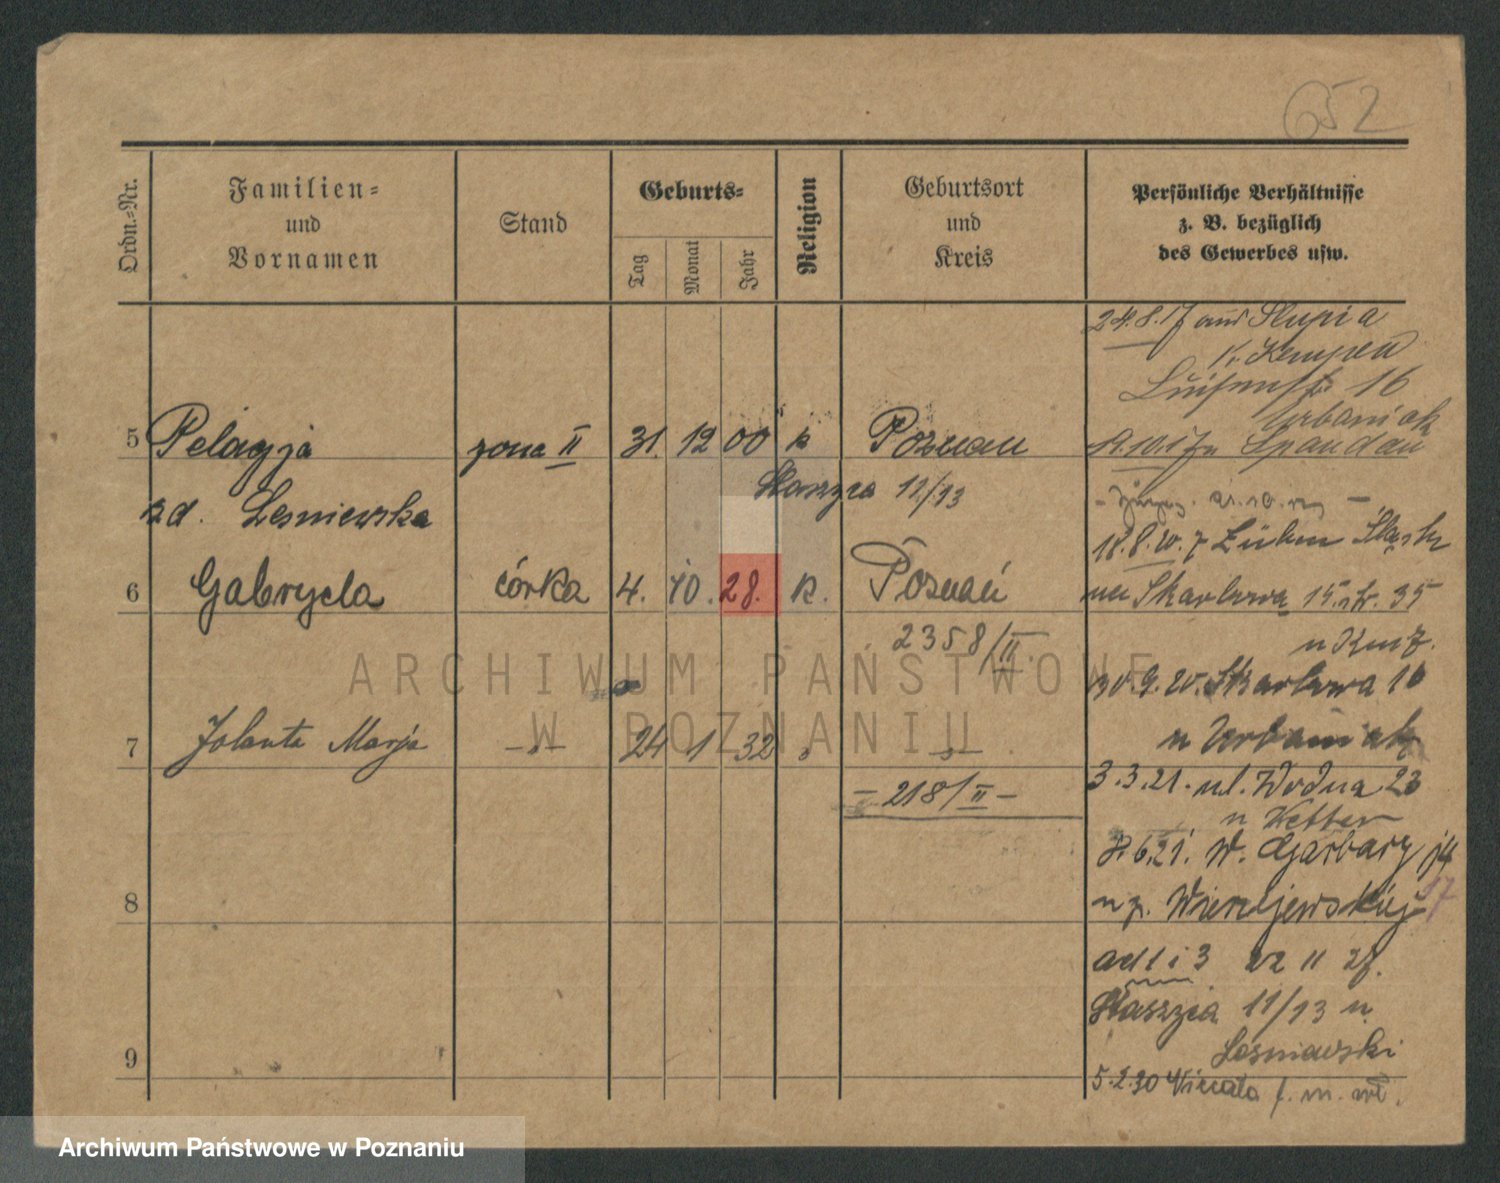 652
Ordn.=Nr.
Familien=
und
Vornamen
Stand
Geburts=
Tag
Monat
Jahr
Religion
Geburtsort
und
Kreis
Persönliche Verhältnisse
z. B. bezüglich
des Gewerbes usw.
24.8.17 aus Slupia
Kr. Kempen
Luisenstr 16
Urbaniak
5 Pelagja żona II 31. 12 00 k Poznań
19.10.17 n Spandau
Staszica 11/13
zd. Leśniewska
18.8.20. z Lüben Śląsk
6 Gabryela córka 4. 10. 28. k. Poznań
na Skarbowa 15. 35
2358/II
30.9.20. Skarbowa 16
n Urbaniak
7 Jolanta Marja —„— 24 1 32 „ —„—
3.3.21. ul. Wodna 23
– 218/II –
n
8.6.21. W. Garbary 14
17
8
n p. Wierzejewskiej
ad 1 i 3 22 11 27.
Staszica 11/13 n
Leśniewski
9
5.2.30
ARCHIWUM PAŃSTWOWE
W POZNANIU
Archiwum Państwowe w Poznaniu